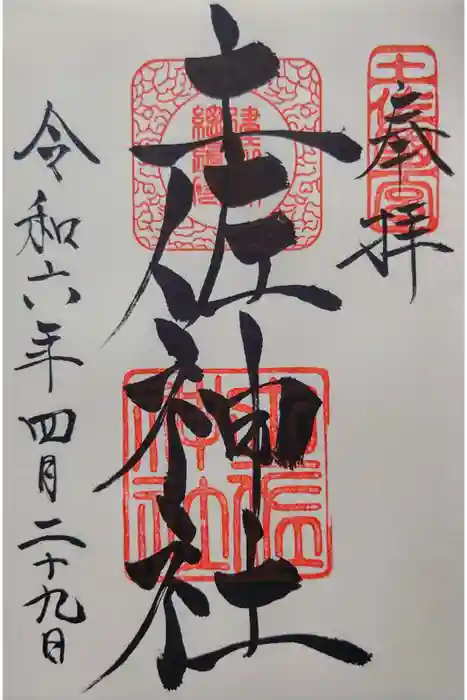 奉拝
土佐神社
令和六年四月二十九日
土佐神社